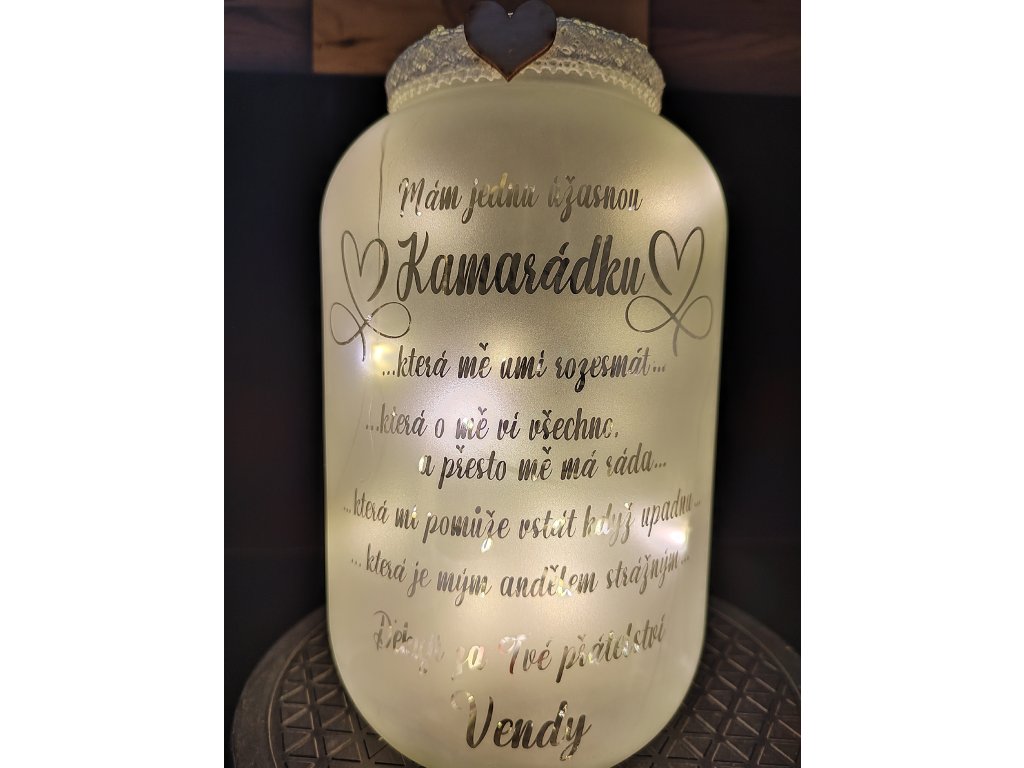 Mám jednu úžasnou
Kamarádku
...která mě umí rozesmát...
...která o mě ví všechno,
a přesto mě má ráda...
...která mi pomůže vstát když upadnu...
...která je mým andělem strážným...
Děkuji za Tvé přátelství
Vendy